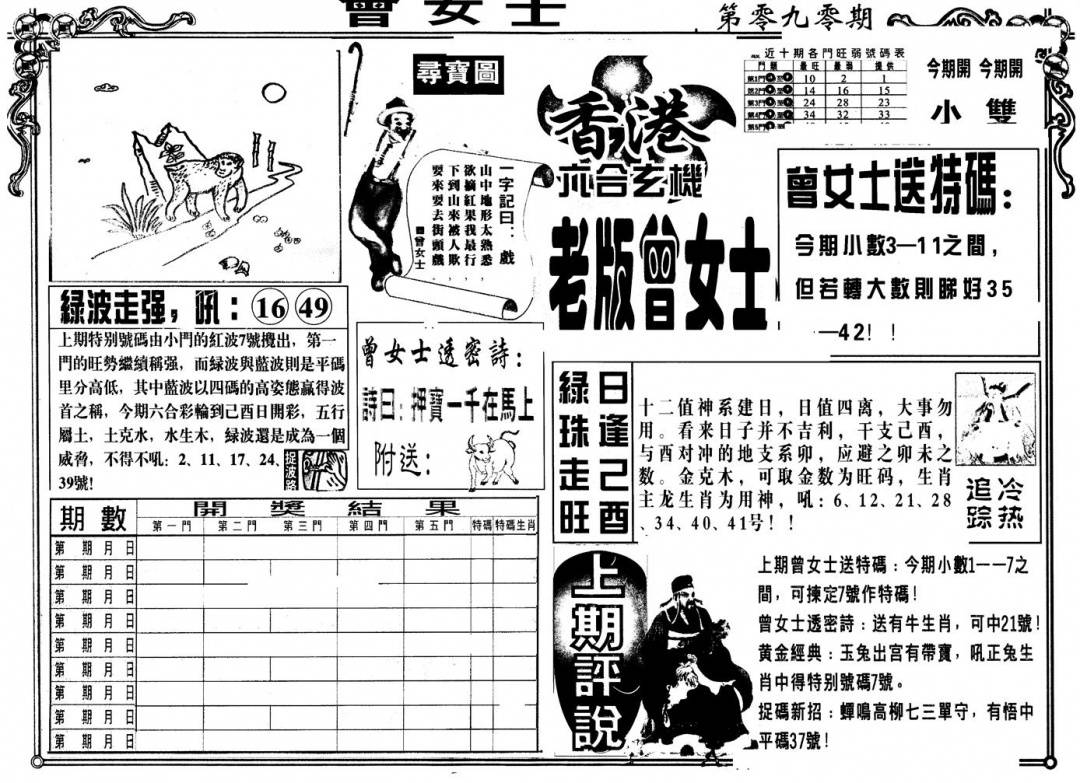 曾女士
第零九零期
尋寶圖
一字記曰：戲
山中地形太熟悉
欲摘紅果我最行
下到山來被人欺
耍來耍去街頭戲
■曾女士
香港
六合玄機
老版曾女士
近十期各門旺弱號碼表
門類 最旺 最弱 提供
第1門 至 10 2 1
第2門 至 14 16 15
第3門 至 24 28 23
第4門 至 34 32 33
第5門 至
今期開 今期開
小 雙
曾女士送特碼：
今期小數3—11之間，
但若轉大數則睇好35
—42！！
綠波走强，吼：16 49
上期特别號碼由小門的紅波7號攪出，第一
門的旺勢繼續稱强，而緑波與藍波則是平碼
里分高低，其中藍波以四碼的高姿態贏得波
首之稱，今期六合彩輪到己酉日開彩，五行
屬土，土克水，水生木，緑波還是成為一個
威脅，不得不吼：2、11、17、24、
39號！
捉波路
曾女士透密詩：
詩曰：押寶一千在馬上
附送：
日逢己酉
綠珠走旺
十二值神系建日，日值四离，大事勿
用。看来日子并不吉利，干支己酉，
与酉对冲的地支系卯，应避之卯未之
数。金克木，可取金数为旺码，生肖
主龙生肖为用神，吼：6、12、21、28
、34、40、41号！！
冷热
追踪
期數 開獎結果
第一門 第二門 第三門 第四門 第五門 特碼 特碼生肖
第 期 月 日
第 期 月 日
第 期 月 日
第 期 月 日
第 期 月 日
第 期 月 日
第 期 月 日
第 期 月 日
第 期 月 日
上期評說
上期曾女士送特碼：今期小數1——7之
間，可揀定7號作特碼！
曾女士透密詩：送有牛生肖，可中21號！
黄金經典：玉兔出宫有帶寶，吼正兔生
肖中得特别號碼7號。
捉碼新招：蟬鳴高柳七三單守，有悟中
平碼37號！